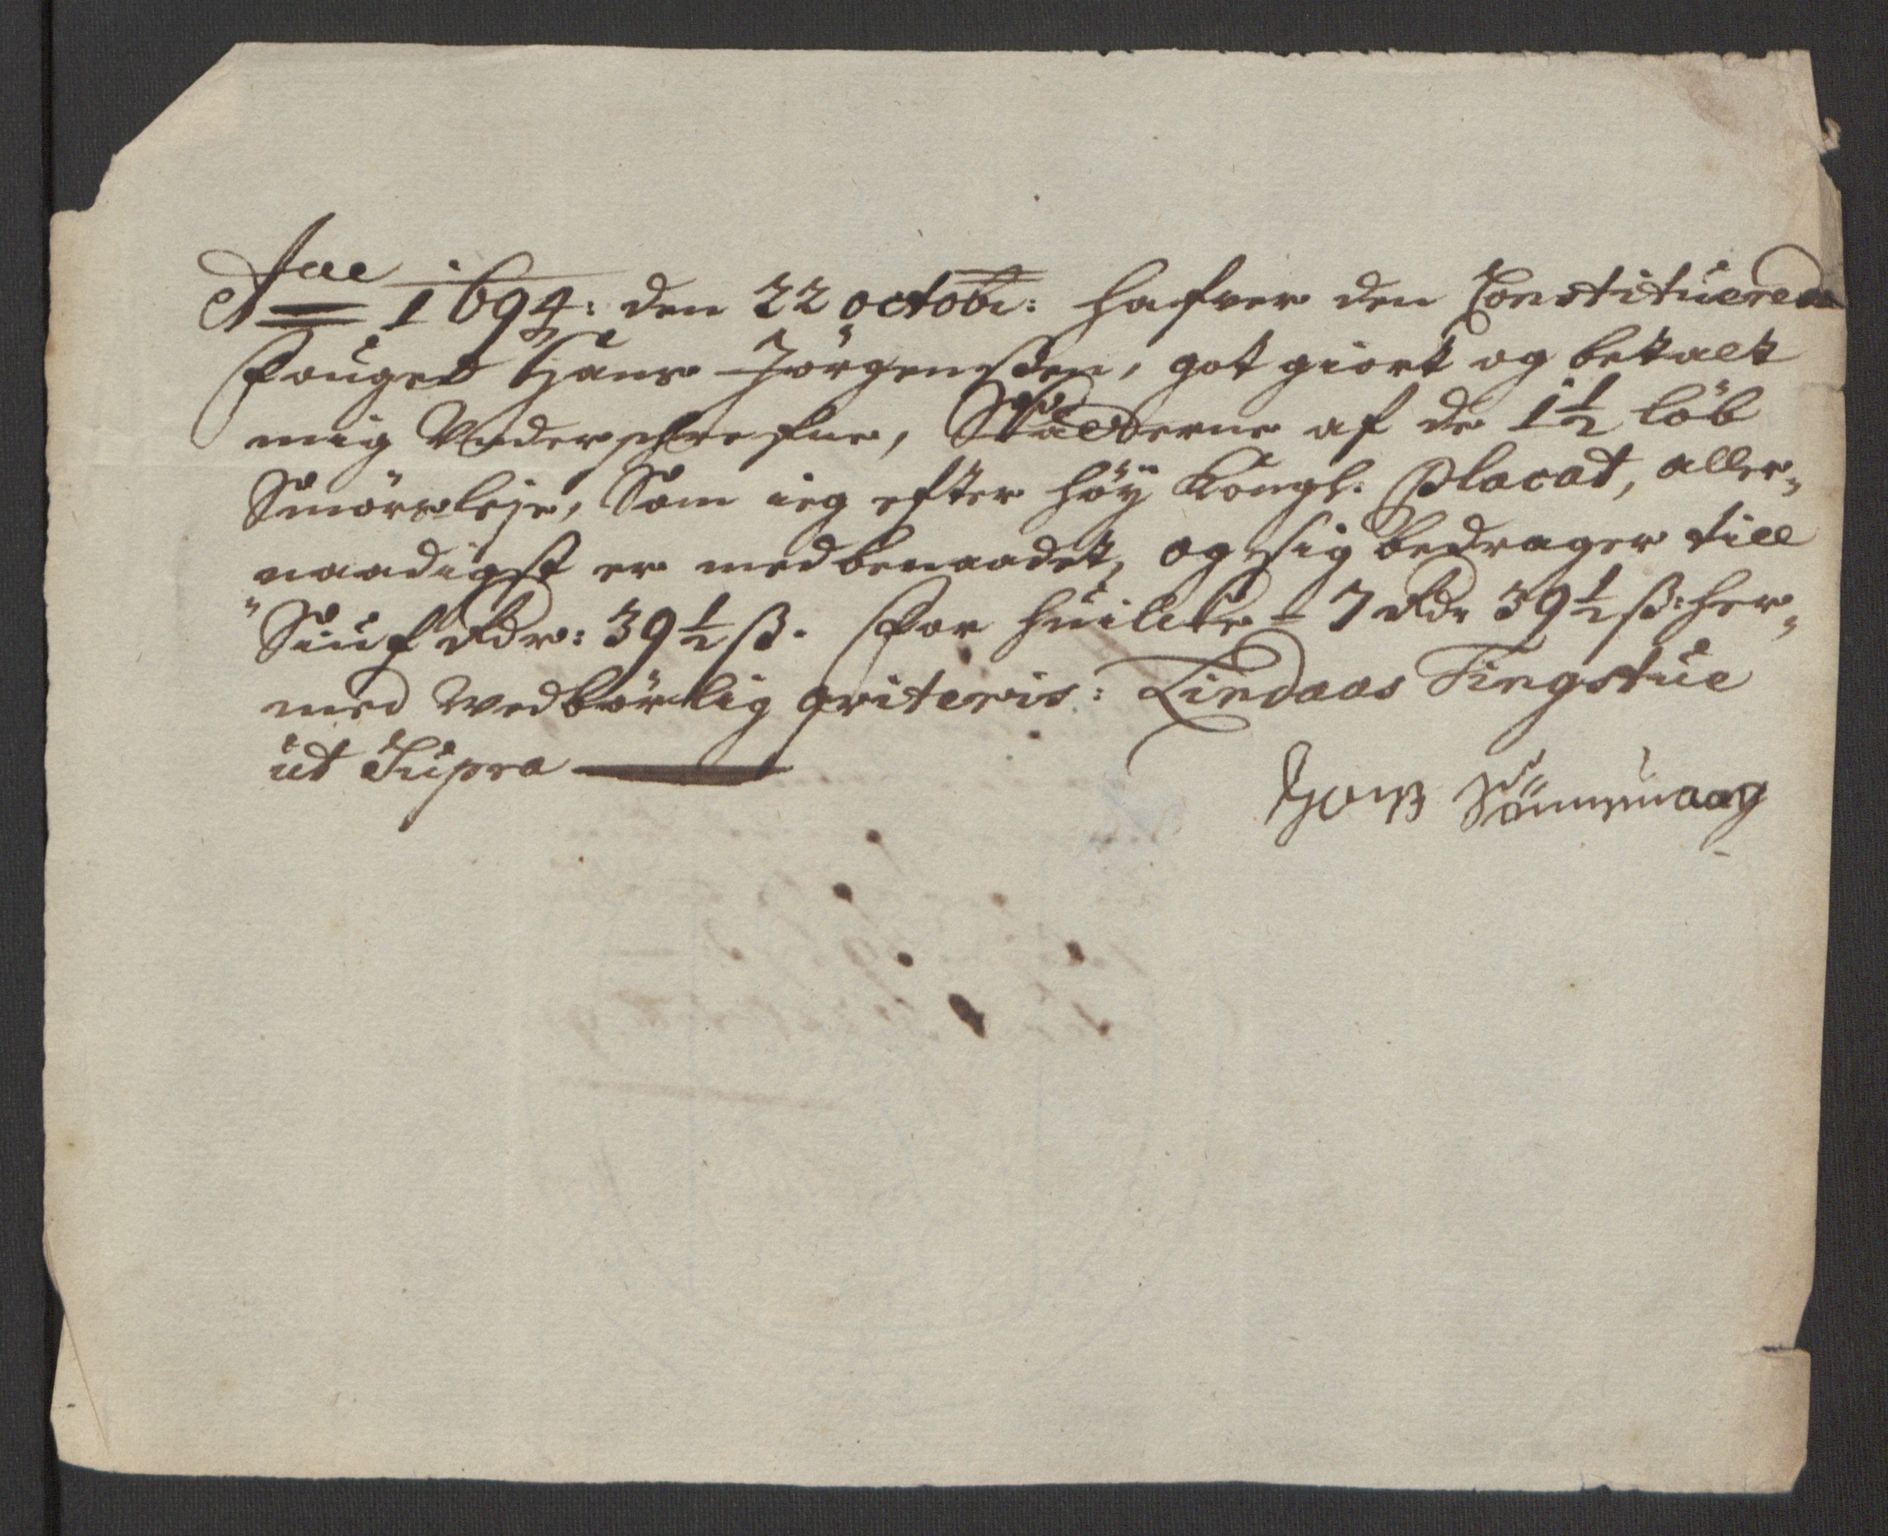 Aae 1694: den 22 octobr: hafver den Constituerede
Fouged Hans Jörgensden, got giort og betalt
mig Underschrefne, af de 1½ löb
Smörsleje, Som ieg efter höÿ Kongl: Placat, aller-
naadigst er med benaadet, og sig bedrager till
Siuf Rdr: 39½ ß. For huilcke - 7 Rdr 39½ ß: her-
med wedbörlig qviteris: Lindaas Tingstue
ut Supra
Sönmmaag